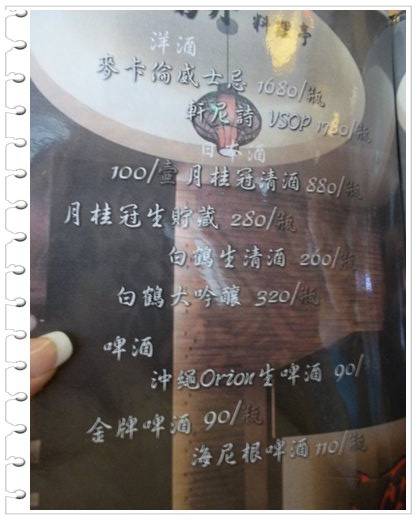 料理亭
洋酒
麥卡倫威士忌 1680/瓶
軒尼詩 VSOP 1780/瓶
日本酒
100/壺 月桂冠清酒 880/瓶
月桂冠生貯藏 280/瓶
白鶴生清酒 200/瓶
白鶴大吟釀 320/瓶
啤酒
沖繩Orion生啤酒 90/
金牌啤酒 90/瓶
海尼根啤酒 110/瓶